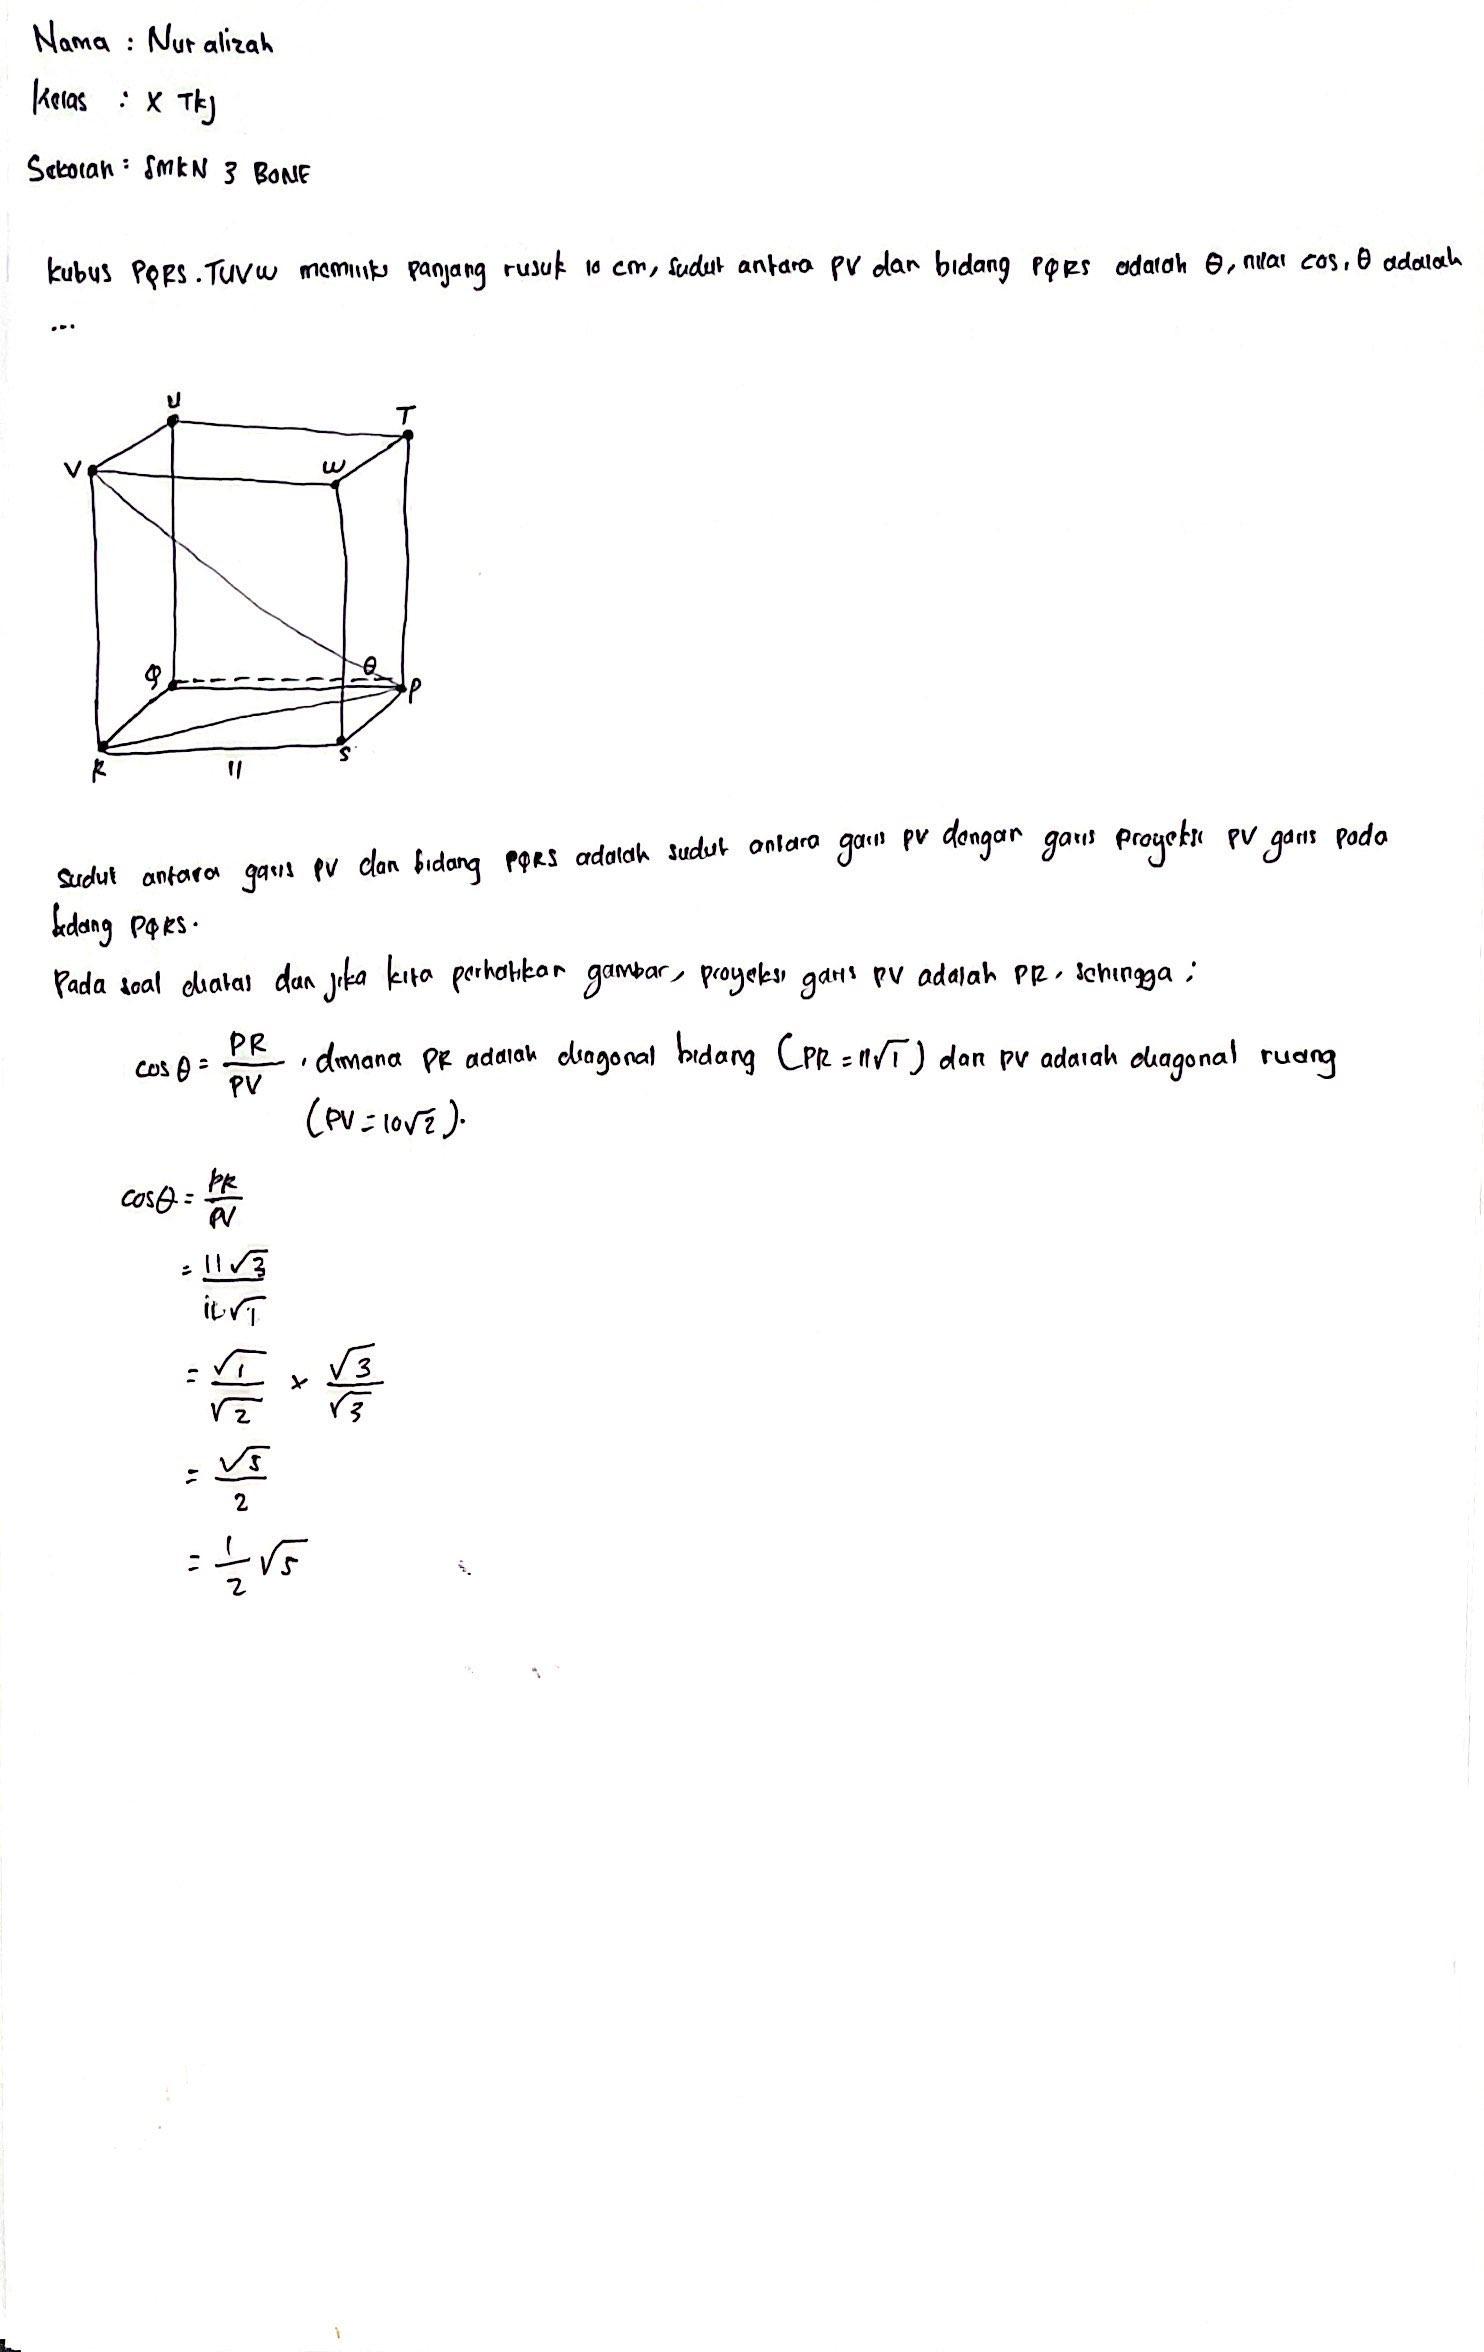 Nama : Nur alizah
Kelas : X TKJ
Sekolah : SMKN 3 BONE
Kubus PQRS.TUVW memiliki panjang rusuk 10 cm, sudut antara PV dan bidang PQRS adalah θ, nilai cos, θ adalah
...
U
T
V
W
θ
Q
P
R
11
S
Sudut antara garis PV dan bidang PQRS adalah sudut antara garis PV dengan garis proyeksi PV garis pada
bidang PQRS.
Pada soal diatas dan jika kita perhatikan gambar, proyeksi garis PV adalah PR, sehingga ;
cos θ = PR/PV , dimana PR adalah diagonal bidang (PR = 11√1) dan PV adalah diagonal ruang
(PV = 10√2).
cos θ = PR/PV
= 11√3
√1
= √1/√2 x √3/√3
= √5/2
= 1/2 √5